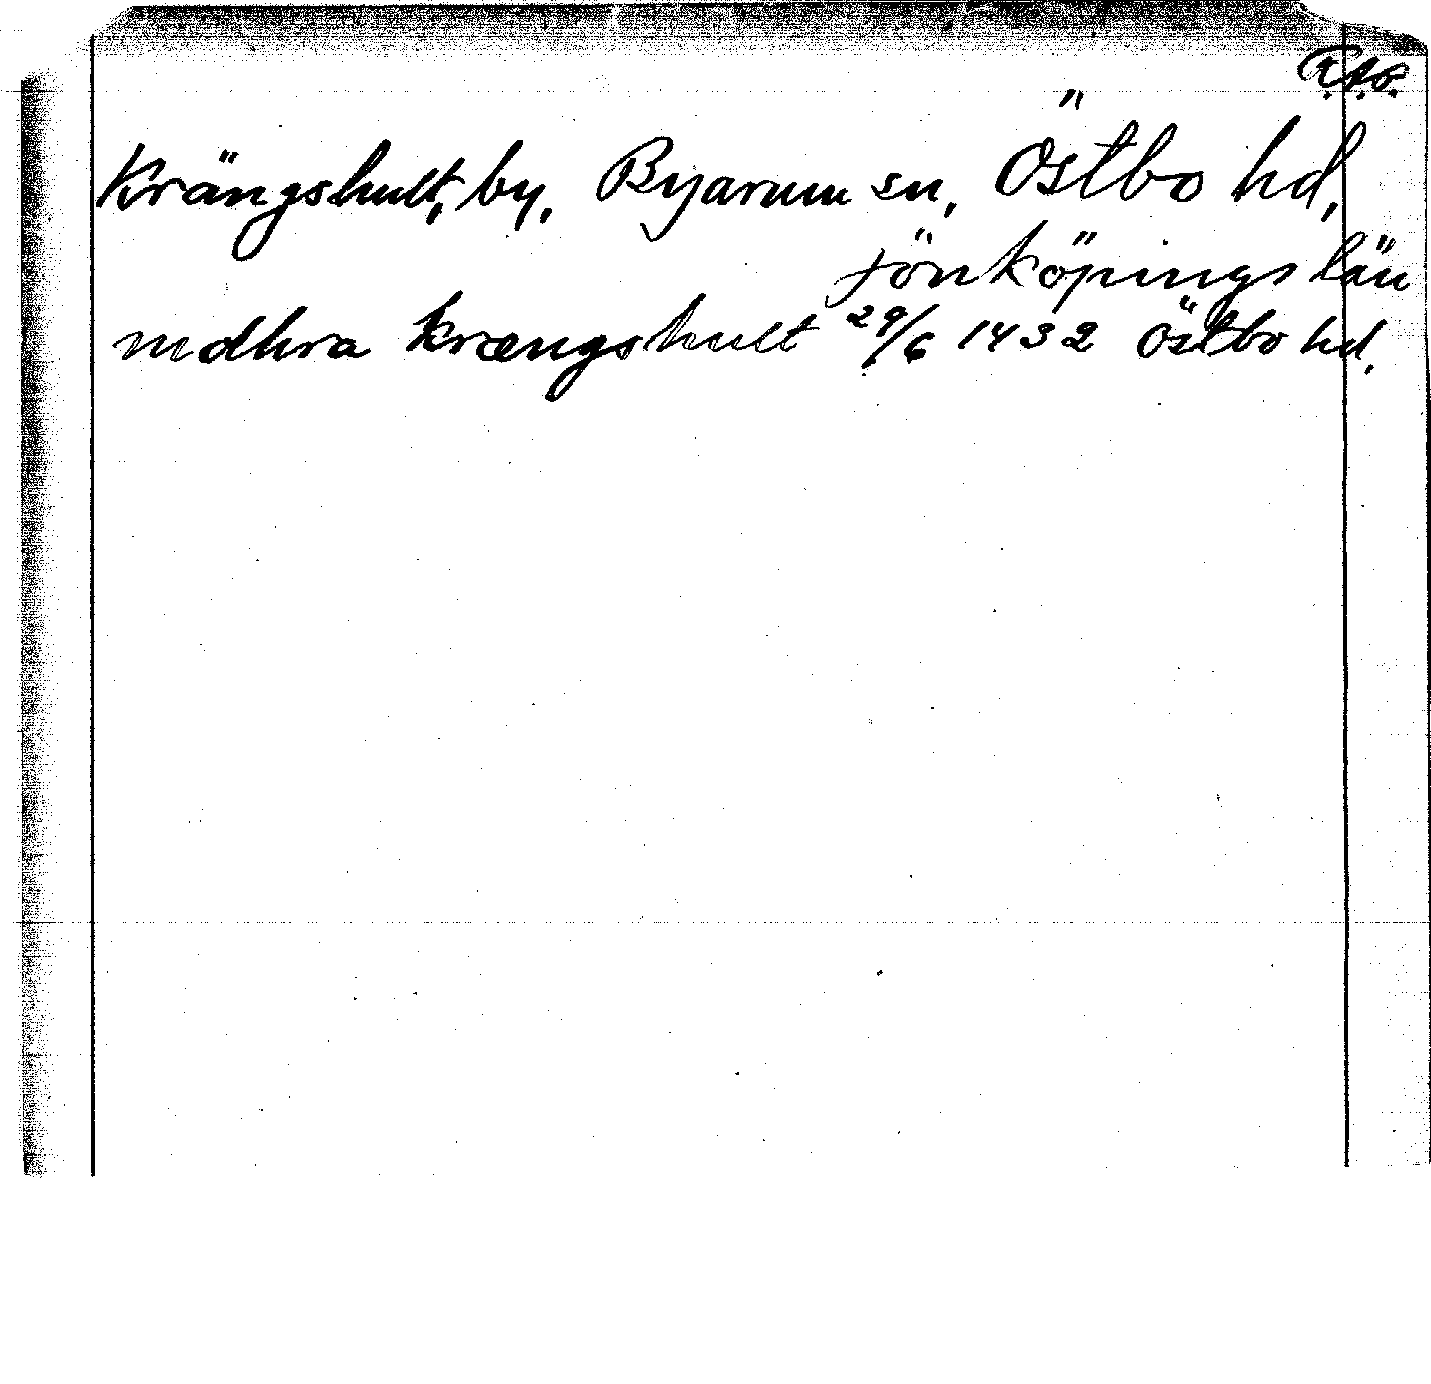 R.A.P.
Krängshult, by, Byarum sn, Östbo hd,
Jönköpings län
nidhra krængshult 29/6 1432 Östbo hd.